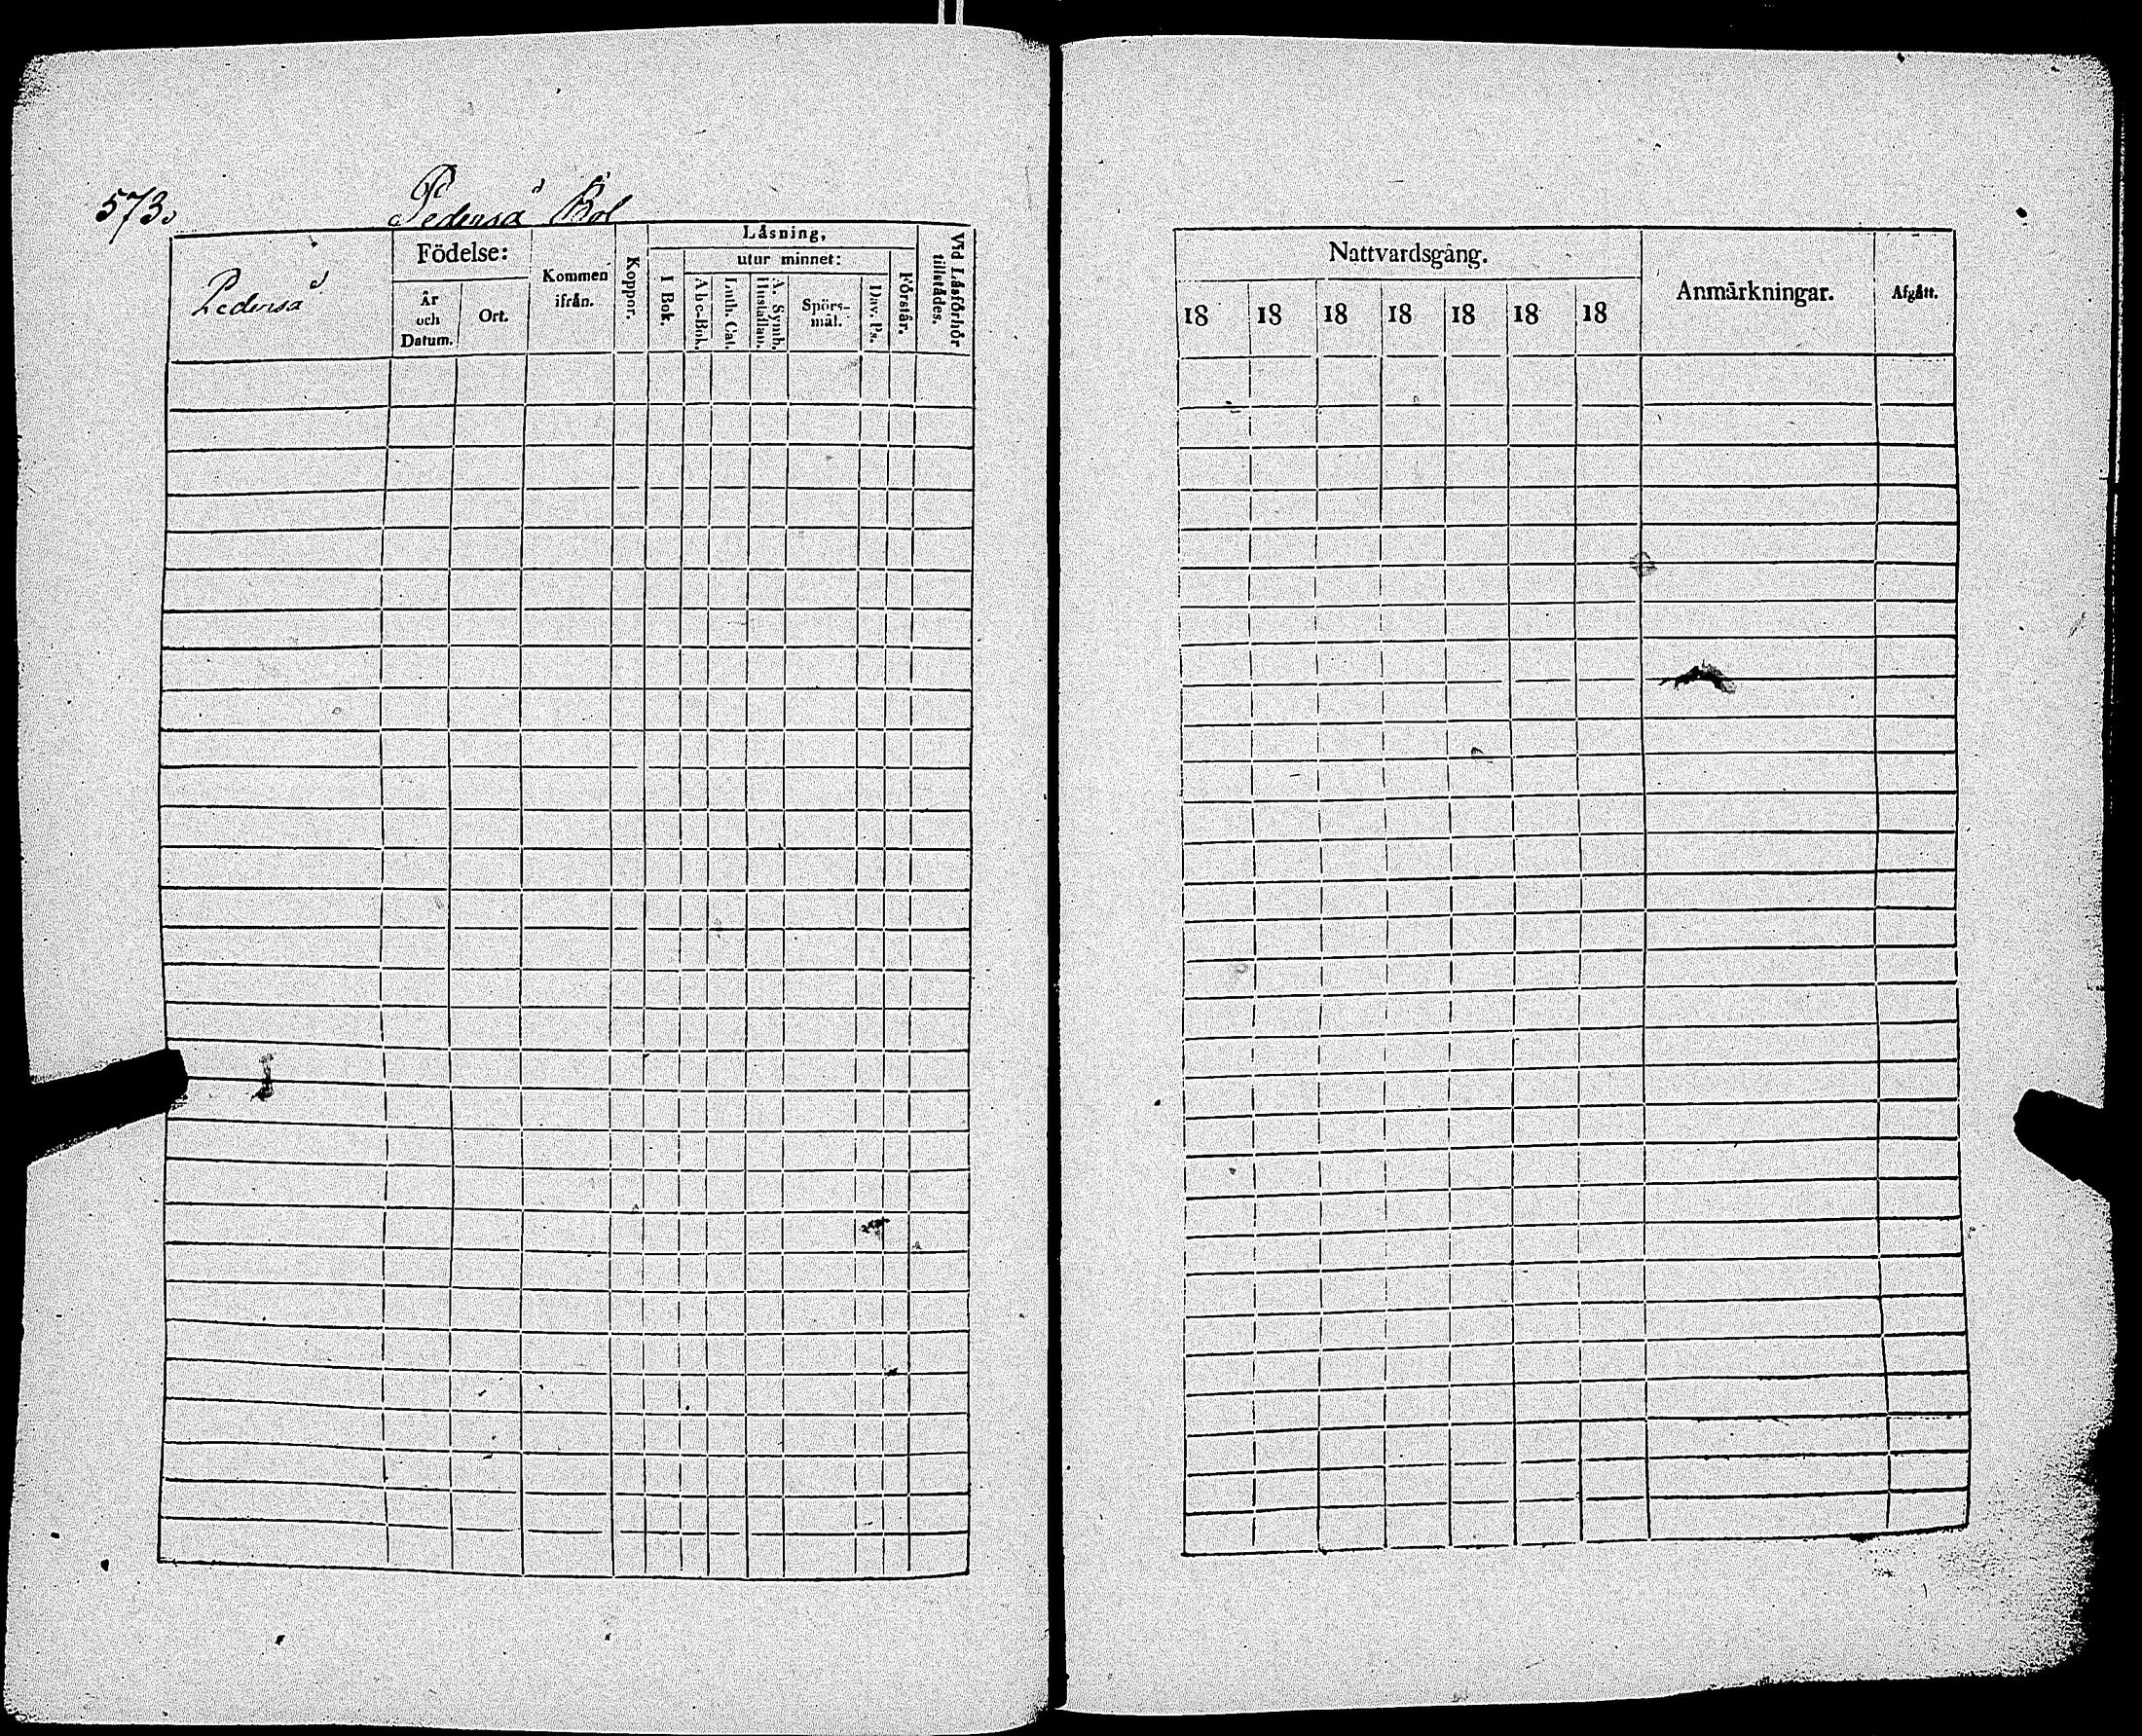 573.
Pederså Bol
Pederså
Födelse:
År
och
Datum.
Ort.
Kommen
ifrån.
Koppor.
Läsning,
I Bok.
utur minnet:
Abc-Bok.
Luth. Cat.
A. Symb.
Hustaflan.
Spörs-
mål.
Dav. Ps.
Förstår.
Vid Läsförhör
tillstädes.
Nattvardsgång.
18 18 18 18 18 18 18
Anmärkningar.
Afgått.